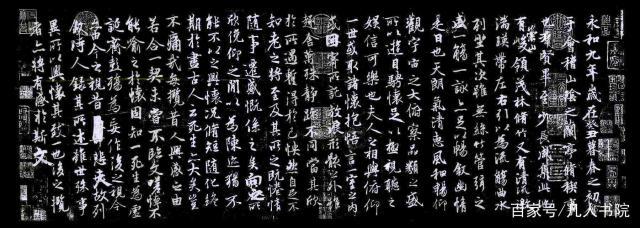 永和九年歲在癸丑暮春之初會
于會稽山陰之蘭亭脩稧事
也群賢畢至少長咸集此地
有崇山峻領茂林脩竹又有清流激
湍暎帶左右引以為流觴曲水
列坐其次雖無絲竹管弦之
盛一觴一詠亦足以暢敘幽情
是日也天朗氣清惠風和暢仰
觀宇宙之大俯察品類之盛
所以遊目騁懷足以極視聽之
娛信可樂也夫人之相與俯仰
一世或取諸懷抱悟言一室之內
或因寄所託放浪形骸之外雖
趣舍萬殊靜躁不同當其欣
於所遇暫得於己怏然自足不
知老之將至及其所之既惓情
隨事遷感慨係之矣向之所
欣俛仰之閒以為陳跡猶不
能不以之興懷況脩短隨化終
期於盡古人云死生亦大矣豈
不痛哉每攬昔人興感之由
若合一契未嘗不臨文嗟悼不
能喻之於懷固知一死生為虛
誕齊彭殤為妄作後之視今
亦由今之視昔悲夫故列
敘時人錄其所述雖世殊事
異所以興懷其致一也後之攬
者亦將有感於斯文
百家号/凡人书院